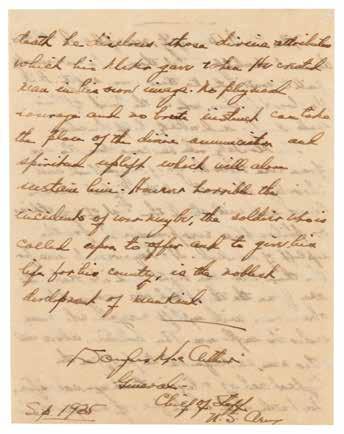 death he discloses those divine attributes
which his Maker gave when He created
man in his own image. No physical
courage and no brute instinct can take
the place of the divine annunciation and
spiritual uplift which will alone
sustain him. However horrible the
incidents of war may be, the soldier who is
called upon to offer and to give his
life for his country, is the noblest
development of mankind.
Douglas MacArthur
General
Chief of Staff
U.S. Army
Sp 1935